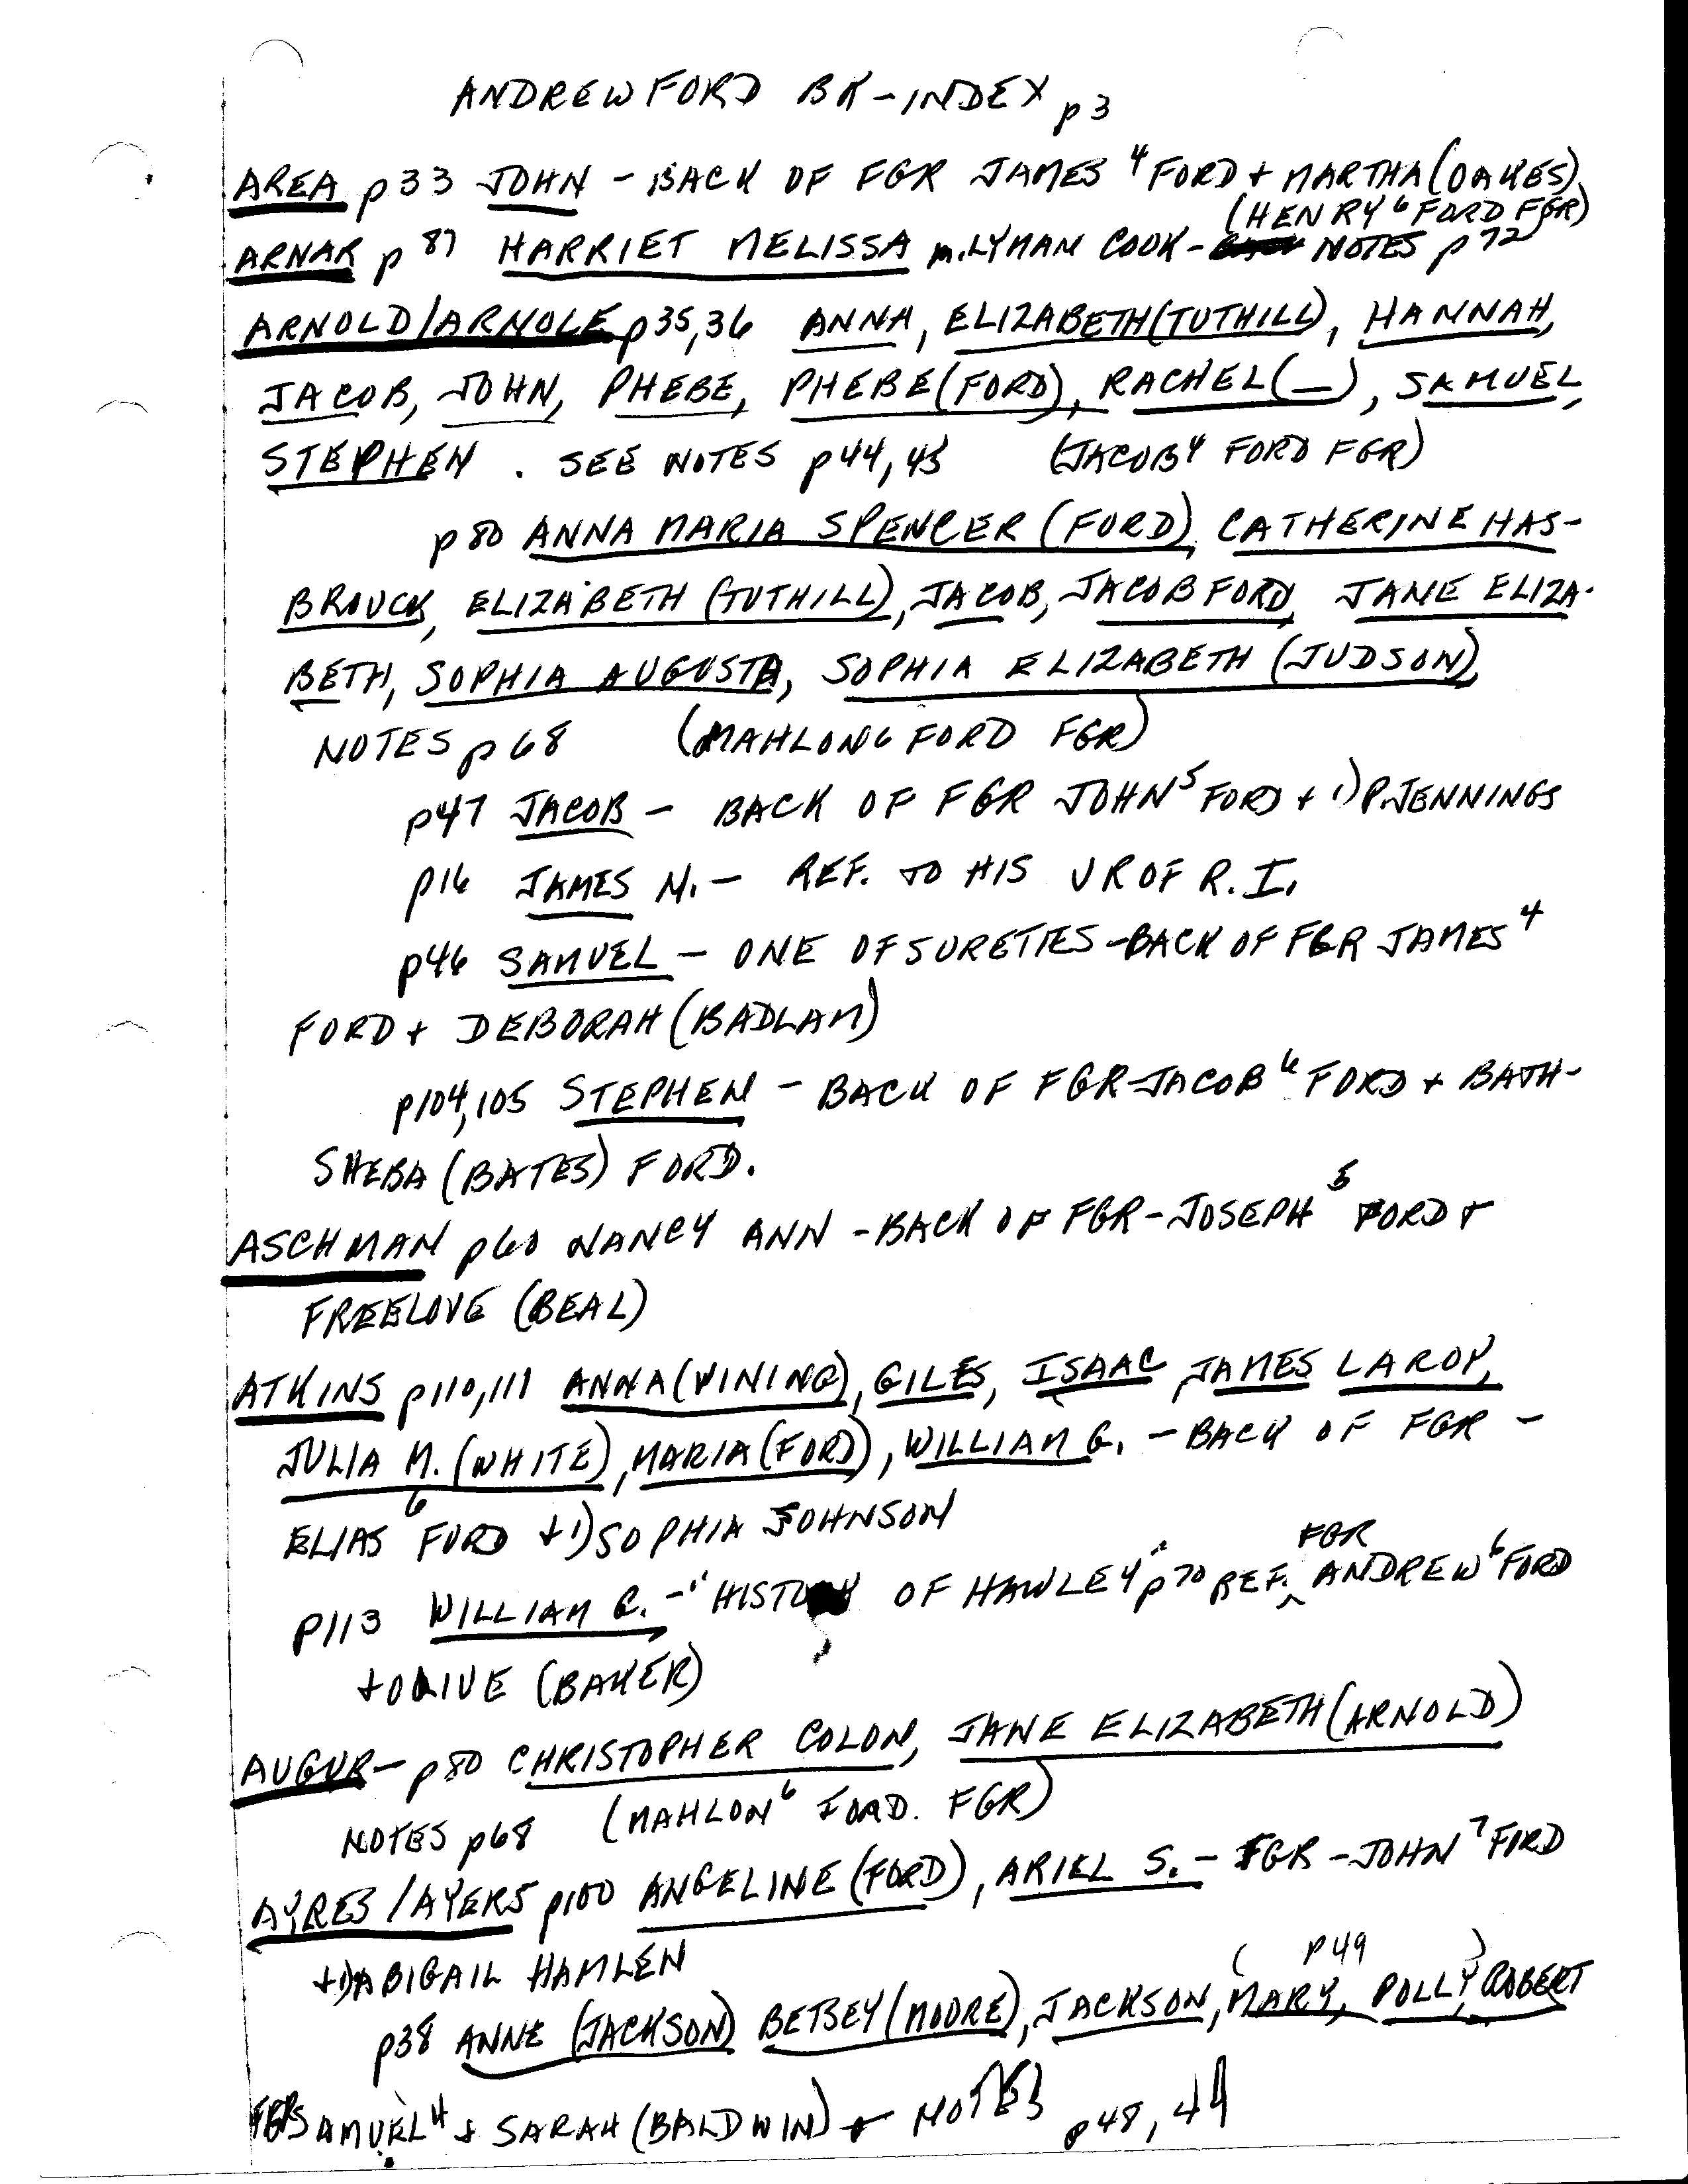 ANDREW FORD BK-INDEX p3
AREA p33 JOHN - BACK OF FGR JAMES ⁴FORD + MARTHA (OAKES)
(HENRY⁶ FORD FGR)
ARNAR p 87 HARRIET MELISSA m. LYMAN COOK - NOTES p72
ARNOLD/ARNOLE p35,36 ANNA, ELIZABETH (TUTHILL), HANNAH,
JACOB, JOHN, PHEBE, PHEBE (FORD), RACHEL (—), SAMUEL,
STEPHEN . SEE NOTES p44,43 (JACOB⁴ FORD FGR)
p80 ANNA MARIA SPENCER (FORD), CATHERINE HAS-
BROUCK, ELIZABETH (TUTHILL), JACOB, JACOB FORD, JANE ELIZA-
BETH, SOPHIA AUGUSTA, SOPHIA ELIZABETH (JUDSON),
NOTES p68 (MAHLON6 FORD FGR)
p47 JACOB - BACK OF FGR JOHN⁵ FORD + 1) P. JENNINGS
p16 JAMES N. - REF. TO HIS VR OF R.I.
p46 SAMUEL - ONE OF SURETIES - BACK OF FGR JAMES⁴
FORD + DEBORAH (BADLAM)
p104,105 STEPHEN - BACK OF FGR-JACOB⁶ FORD + BATH-
SHEBA (BATES) FORD.
ASCHMAN p60 NANCY ANN - BACK OF FGR - JOSEPH⁵ FORD +
FREELOVE (BEAL)
ATKINS p110,111 ANNA (VINING), GILES, ISAAC, JAMES LAROY,
JULIA M. (WHITE), MARIA (FORD), WILLIAM G. - BACK OF FGR -
ELIAS⁶ FORD + 1) SOPHIA JOHNSON
p113 WILLIAM G. - "HISTORY OF HAWLEY" p70 REF. FGR ANDREW⁶ FORD
+ OLIVE (BAKER)
AUGUR - p80 CHRISTOPHER COLON, JANE ELIZABETH (ARNOLD)
NOTES p68 (MAHLON⁶ FORD. FGR)
AYRES / AYERS p100 ANGELINE (FORD), ARIEL S. - FGR - JOHN⁷ FORD
+ 1) ABIGAIL HAMLEN
p38 ANNE (JACKSON) BETSEY (MOORE), JACKSON, (MARY, p49 POLLY,) ROBERT
FGR SAMUEL⁴ + SARAH (BALDWIN) + NOTES p48, 49